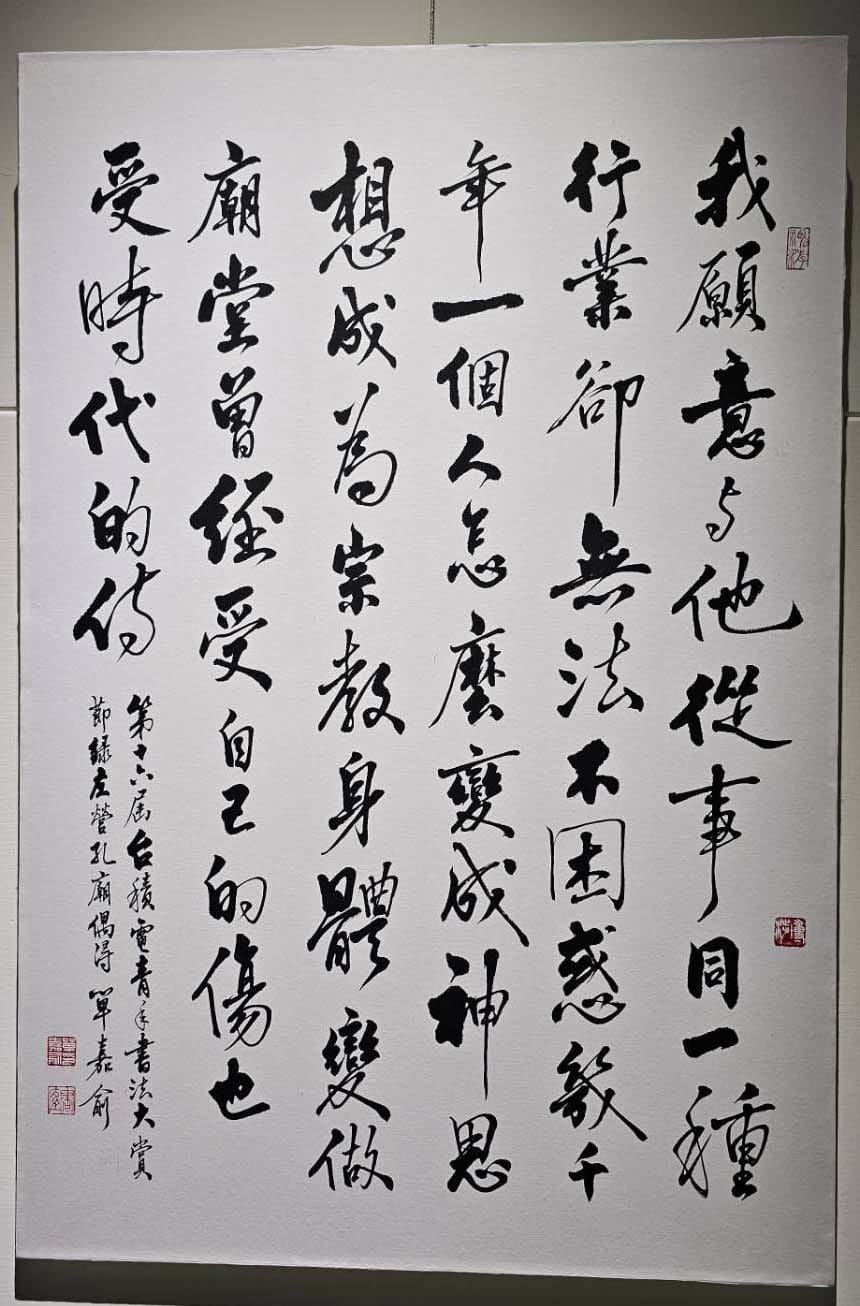 我願意与他從事同一種
行業卻無法不困惑幾千
年一個人怎麼變成神思
想成為宗教身體變做
廟堂曾經受自己的傷也
受時代的傷
第十六屆台積電青年書法大賞
節錄左營孔廟偶得 單嘉俞